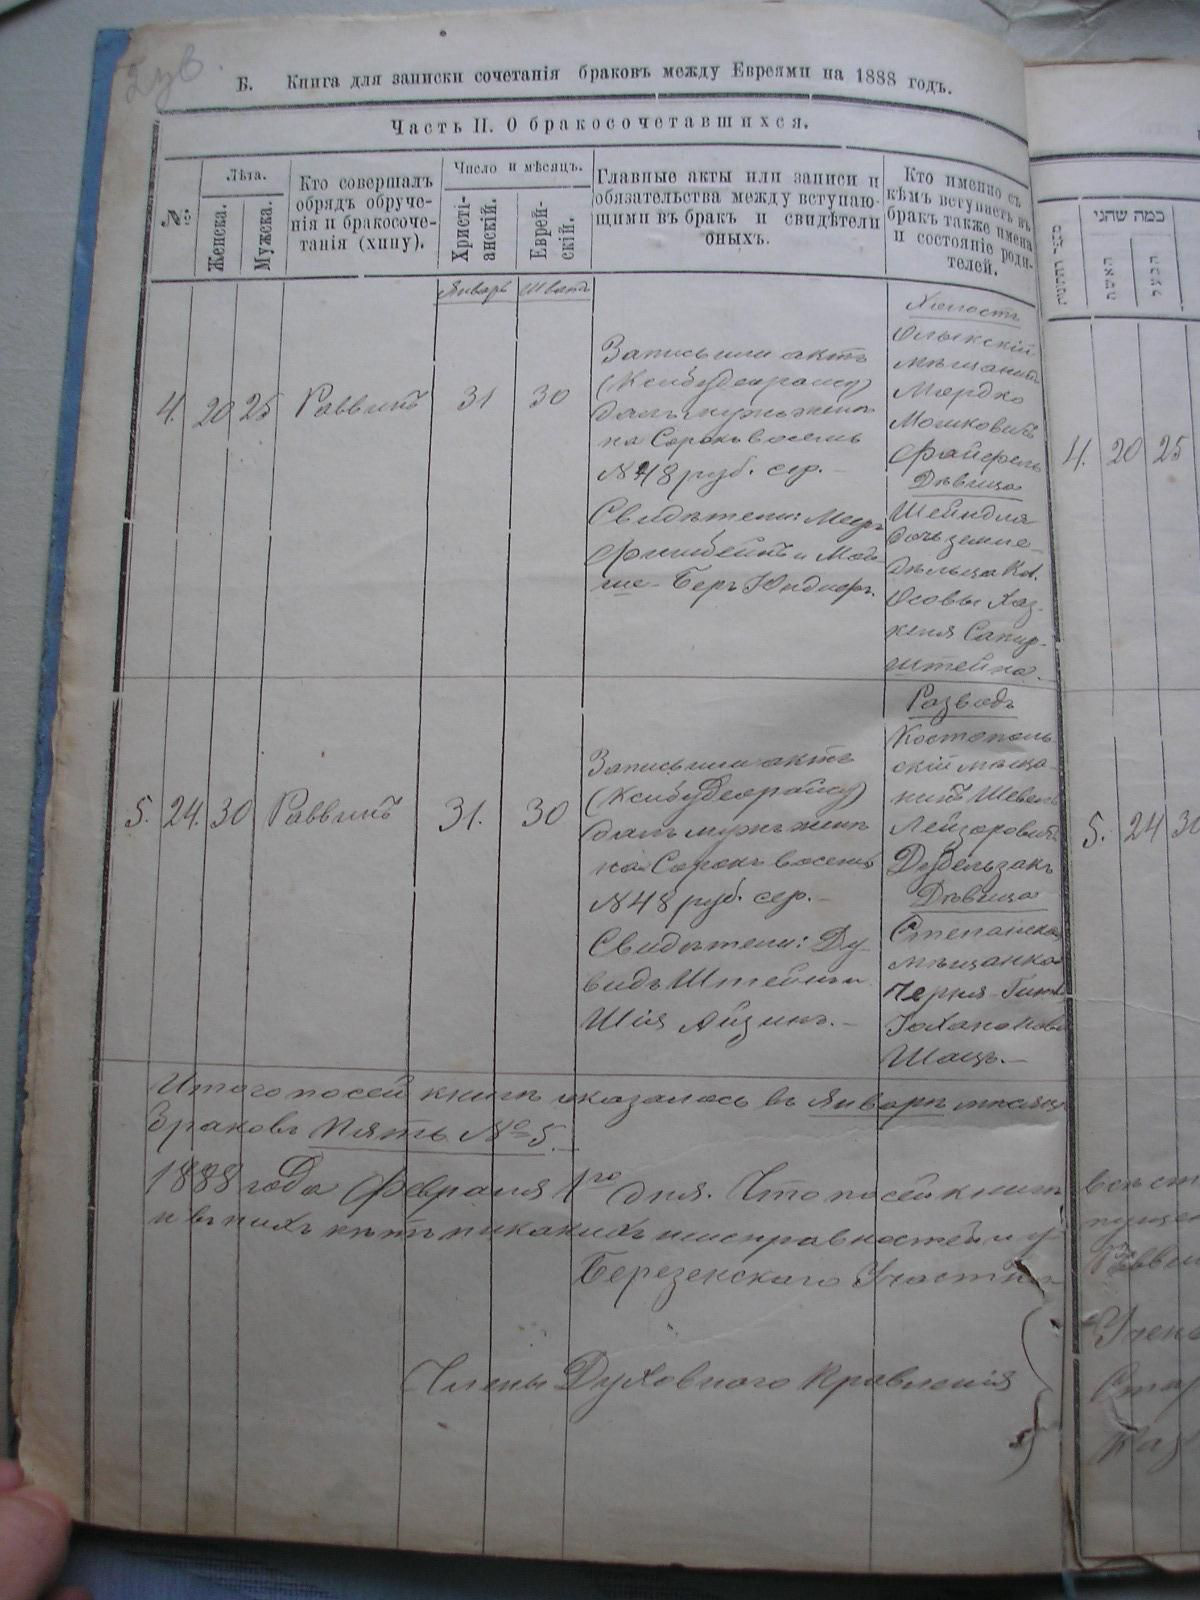 Б. Книга для записки сочетанія браковъ между Евреями на 1888 годъ.
Часть II. О бракосочетавшихся.
№
Лѣта.
Женска.
Мужска.
Кто совершалъ
обрядъ обруче-
нія и бракосоче-
танія (хипу).
Число и мѣсяцъ.
Христі-
анскій.
Еврей-
скій.
Главные акты или записи и
обязательства между вступаю-
щими въ бракъ и свидѣтели
оныхъ.
Кто именно съ
кѣмъ вступаетъ въ
бракъ также имена
и состояніе роди-
телей.
Январь
Шватъ
4. 20 25 Раввинъ 31 30
Запись или актъ
далъ мужъ женѣ
на Сорокъ восемь
№ 48 руб. сер. -
Свидѣтели: Мееръ
ше - Беръ
Холостъ
Олыкскій
мѣщанинъ
Мордко
Мошковичъ
Файфель
Дѣвица
Шейндля
дочь земле-
дѣльца Кол.
Осовы Хаз-
келя Сапир-
штейна.
5. 24. 30 Раввинъ 31. 30
Запись или актъ
далъ мужъ женѣ
на Сорокъ восемь
№ 48 руб. сер. -
Свидѣтели: Ду-
видъ Штейнъ и
Шія Айзинъ. -
Разводъ
Костополь
скій мѣща-
нинъ Шевель
Лейзоровичъ
Дубельзакъ
Дѣвица
Степанская
мѣщанка
Черня
Шацъ. -
Итого по сей книгѣ оказалось въ Январѣ мѣсяцѣ
Браковъ Пять № 5.
1888 года Февраля 1го дня. Что по сей книгѣ
и въ нихъ нѣтъ никакихъ неисправностей и у-
Березенскаго Участка
Члены Духовнаго Правленія
כמה שהני
האשה
הבעל
4. 20 25
5. 24 30